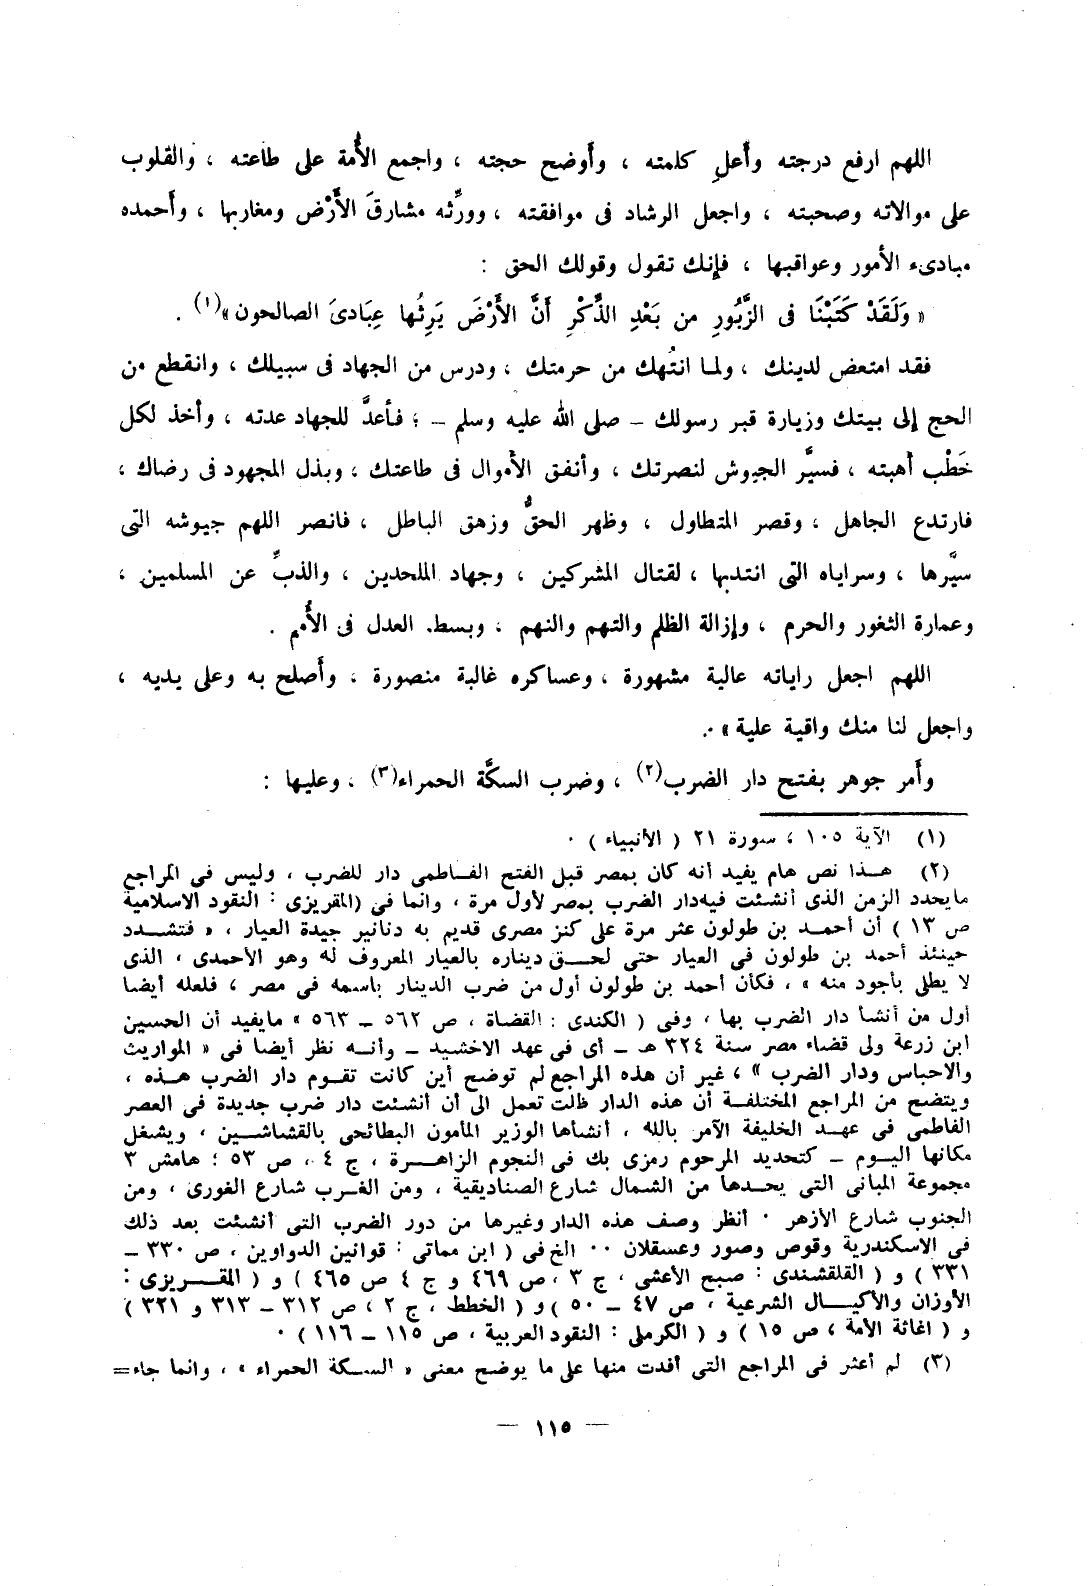 اللهم ارفع درجته وأَعلِ كلمته ، وأَوضح حجته ، واجمع الأُمة على طاعته ، والقلوب
على موالاته وصحبته ، واجعل الرشاد فى موافقته ، وورِّثه مشارقَ الأَرْض ومغاربها ، وأَحمده
مبادىء الأمور وعواقبها ، فإنك تقول وقولك الحق :
« وَلَقَدْ كَتَبْنَا فى الزَّبُورِ من بَعْدِ الذِّكْرِ أَنَّ الأَرْضَ يَرِثُها عِبَادىَ الصالحون »(١) .
فقد امتعض لدينك ، ولما انتُهك من حرمتك ، ودرس من الجهاد فى سبيلك ، وانقطع من
الحج إلى بيتك وزيارة قبر رسولك – صلى الله عليه وسلم – ؛ فأعدَّ للجهاد عدته ، وأخذ لكل
خَطْب أهبته ، فسيَّر الجيوش لنصرتك ، وأنفق الأموال فى طاعتك ، وبذل المجهود فى رضاك ،
فارتدع الجاهل ، وقصر المتطاول ، وظهر الحقُّ وزهق الباطل ، فانصر اللهم جيوشه التى
سيَّرها ، وسراياه التى انتدبها ، لقتال المشركين ، وجهاد الملحدين ، والذبِّ عن المسلمين ،
وعمارة الثغور والحرم ، وإزالة الظلم والتهم والنهم ، وبسط العدل فى الأُمم .
اللهم اجعل راياته عالية مشهورة ، وعساكره غالبة منصورة ، وأَصلح به وعلى يديه ،
واجعل لنا منك واقية علية » .
وأَمر جوهر بفتح دار الضرب(٢) ، وضرب السكَّة الحمراء(٣) ، وعليها :
(١) الآية ١٠٥ ، سورة ٢١ ( الأنبياء ) .
(٢) هذا نص هام يفيد أنه كان بمصر قبل الفتح الفاطمى دار للضرب ، وليس فى المراجع
مايحدد الزمن الذى أنشئت فيه دار الضرب بمصر لأول مرة ، وانما فى (المقريزى : النقود الاسلامية
ص ١٣ ) أن أحمد بن طولون عثر مرة على كنز مصرى قديم به دنانير جيدة العيار ، « فتشدد
حينئذ أحمد بن طولون فى العيار حتى لحق ديناره بالعيار المعروف له وهو الأحمدى ، الذى
لا يطلى بأجود منه » ، فكأن أحمد بن طولون أول من ضرب الدينار باسمه فى مصر ، فلعله أيضا
أول من أنشأ دار الضرب بها ، وفى ( الكندى : القضاة ، ص ٥٦٢ – ٥٦٣ » مايفيد أن الحسين
ابن زرعة ولى قضاء مصر سنة ٣٢٤ هـ – أى فى عهد الاخشيد – وأنه نظر أيضا فى « المواريث
والاحباس ودار الضرب » ، غير أن هذه المراجع لم توضح أين كانت تقوم دار الضرب هذه ،
ويتضح من المراجع المختلفة أن هذه الدار ظلت تعمل الى أن أنشئت دار ضرب جديدة فى العصر
الفاطمى فى عهد الخليفة الآمر بالله ، أنشأها الوزير المأمون البطائحى بالقشاشين ، ويشغل
مكانها اليوم – كتحديد المرحوم رمزى بك فى النجوم الزاهرة ، ج ٤ ، ص ٥٣ ؛ هامش ٣
مجموعة المبانى التى يحدها من الشمال شارع الصناديقية ، ومن الغرب شارع الغورى ، ومن
الجنوب شارع الأزهر . أنظر وصف هذه الدار وغيرها من دور الضرب التى أنشئت بعد ذلك
فى الاسكندرية وقوص وصور وعسقلان .. الخ فى ( ابن مماتى : قوانين الدواوين ، ص ٣٣٠ –
٣٣١ ) و ( القلقشندى : صبح الأعشى ، ج ٣ ، ص ٤٦٩ و ج ٤ ص ٤٦٥ ) و ( المقريزى :
الأوزان والأكيال الشرعية ، ص ٤٧ – ٥٠ ) و ( الخطط ، ج ٢ ، ص ٣١٢ – ٣١٣ و ٣٢١ )
و ( اغاثة الأمة ، ص ١٥ ) و ( الكرملى : النقود العربية ، ص ١١٥ – ١١٦ ) .
(٣) لم أعثر فى المراجع التى أفدت منها على ما يوضح معنى « السكة الحمراء » ، وانما جاء=
— ١١٥ —